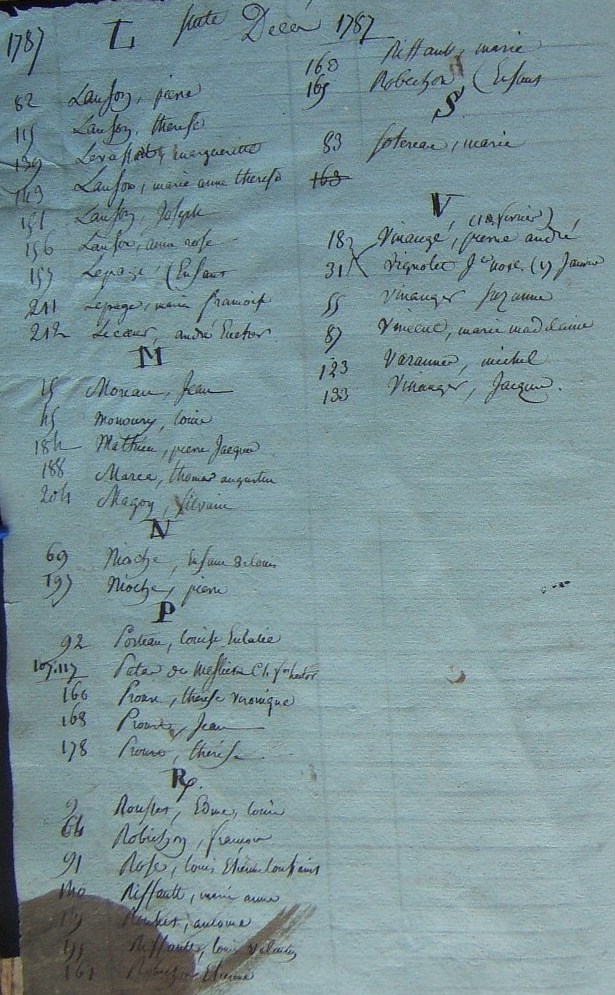 1787 L suite Décès 1787
82 Lanson, pierre
115 Lanson, therese
139 Levassor, marguerite
149 Lanson, marie anne therese
151 Lanson, Joseph
156 Lanson, anne rose
157 Lepage (Enfant
211 Lepage, marie françoise
212 Lecoeur, andré
M
15 Moreau, Jean
45 monoury, louise
184 Mathieu, pierre Jacques
188 Marca, thomas augustin
204 Magoy, Silvain
N
69 Nioche, Enfant de louis
197 Nioche, pierre
P
92 Poteau, louise Eulalie
107.117 Patas du
160 Prouve, thérèse veronique
168 Prouve, Jean
178 Prouve, thérèse
R
9 Rousset, Edme, louis
64 Robichon, françois
91 Rose, louis Etienne toussaint
140 Riffault, marie anne
antoine
Riffault, louis valentin
161 Robichon Etienne
160 Riffault, marie
165 Robichon (Enfant
S
83 Sotereau, marie
163
V
18 Vinauger, pierre andré (18 fevrier)
31 Vignolet (17 Janvier
55 Vinauger Suzanne
87 marie madelaine
123 Varannes, michel
133 Vinauger, Jacques.